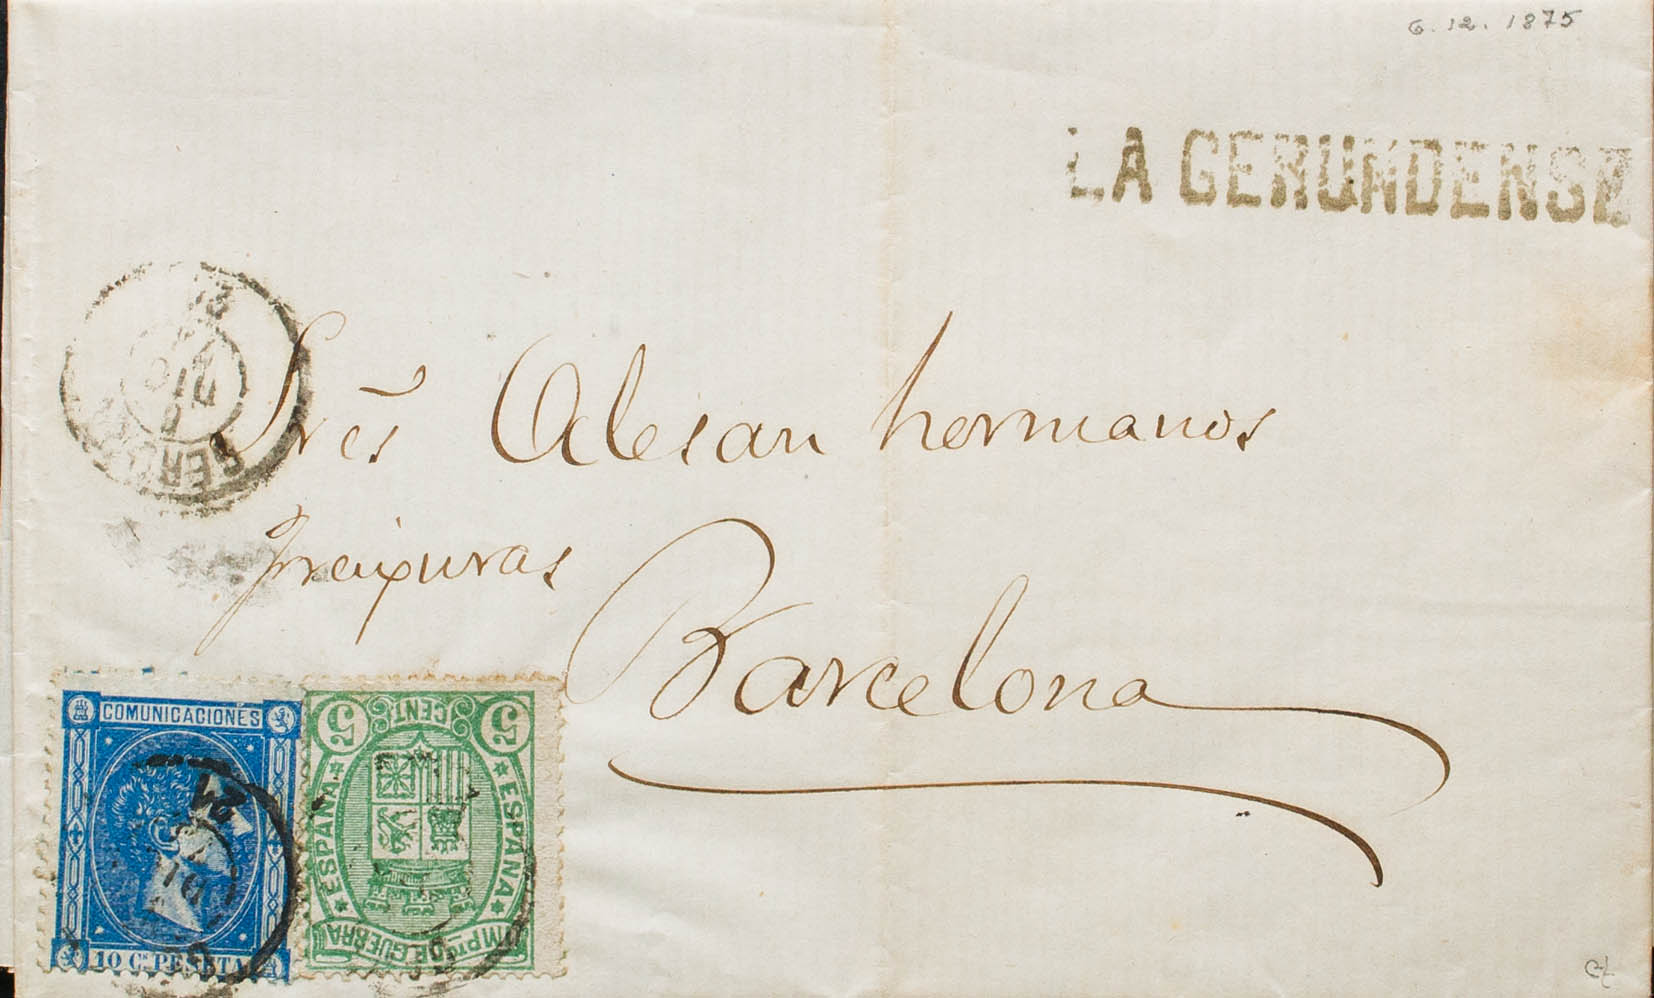 6.12.1875
LA GERUNDENSE
Sres Alesan hermanos
Freixuras
Barcelona
COMUNICACIONES
10 Cs PESETA
5 CENT 5
ESPANA
ESPANA
IMPto DE GUERRA
DIC